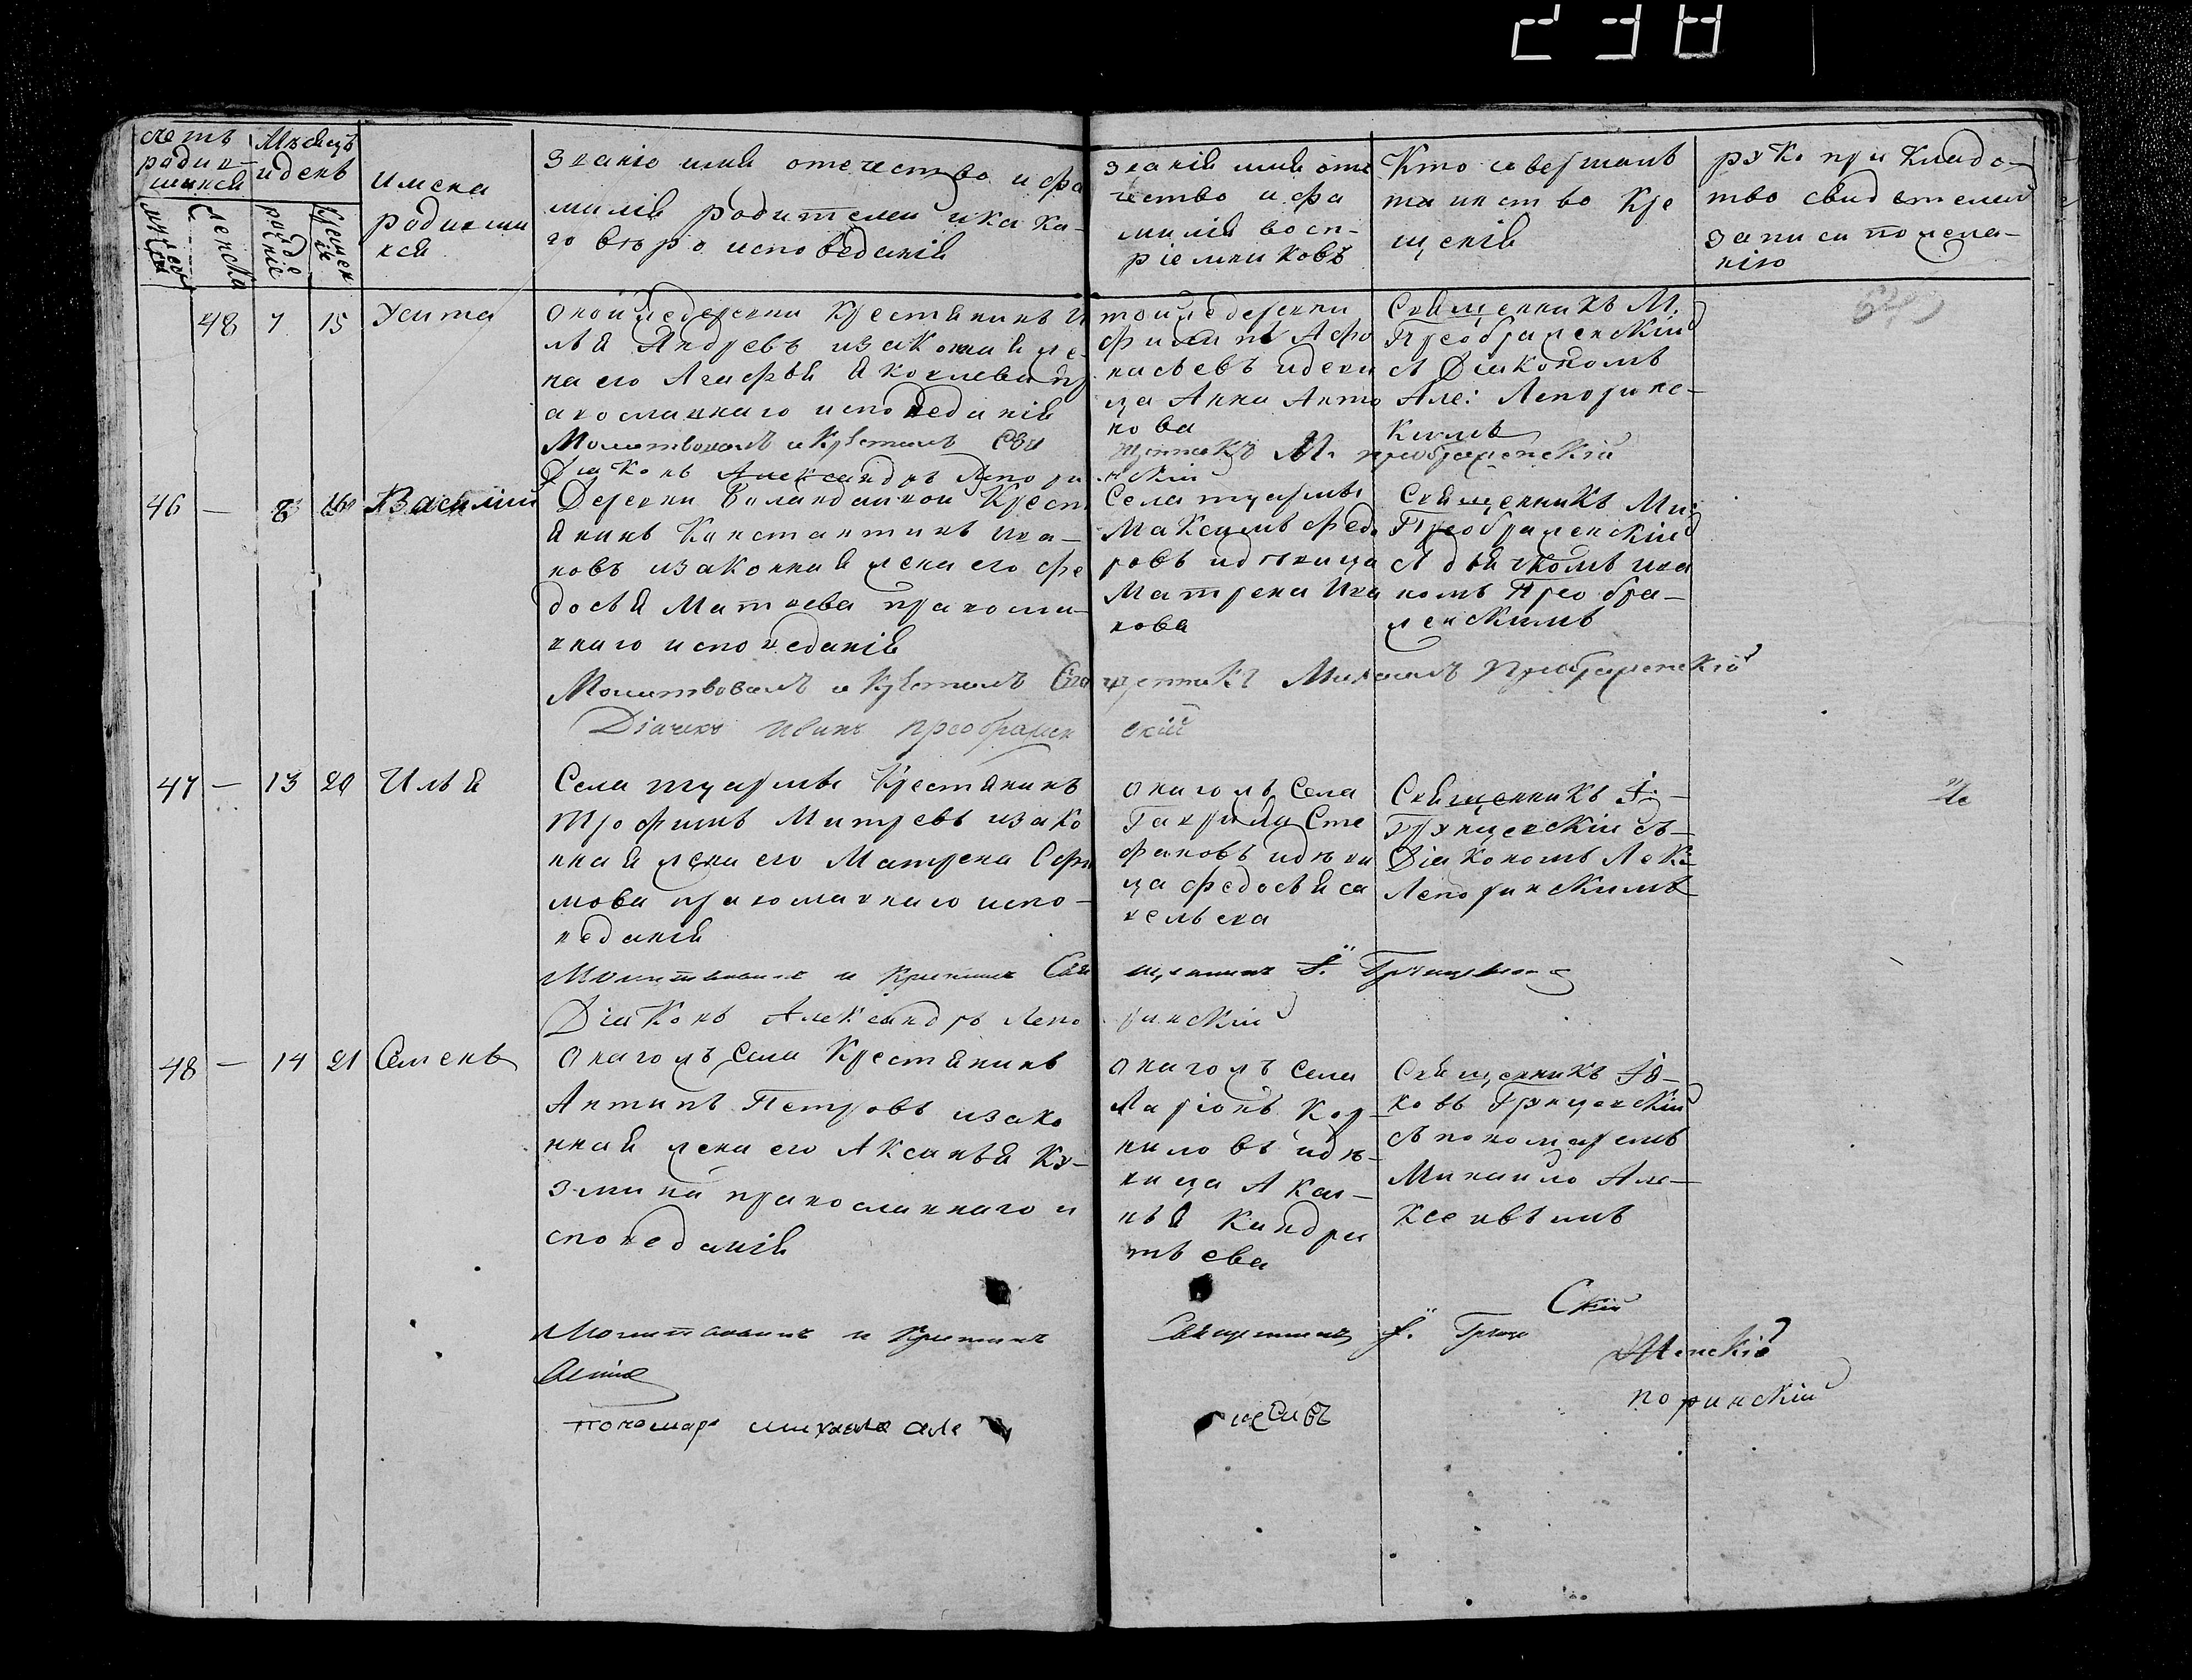 238
счетъ родив-шихся
Мѣсяцъ и день
Имена родившихся
званіе имя отечество и фамилія родителей и кака-го вѣро исповеданія
званія имя отечество и фамилія воспріемниковъ
Кто совершалъ таинство Крещенія
рукоприкладство свидетелей записи по желанію
женска
рождение
48 7 15 Улита
оной же деревни Крестьянинъ И
лья Андреевъ и законная же
на его Агафья Яковлева пр
авославнаго исповеданія
той же деревни
Филипъ Афо
насьевъ и деви
ца Анна Анто
нова
Священникъ М.
Преображенскій
съ Діакономъ
Але: Лепоринс-
кимъ
Молитвовалъ и Крѣстилъ Свя щенникъ М. Преображенскій
Діаконъ Александръ Лепори нскій
46 — 8 16 Василий
Деревни Крест
янинъ Константинъ Ива-
новъ и законная жена его Фе
досья Матвева православ-
внаго исповеданія
Села
Максимъ Федо
ровъ и дѣвица
Матрена Ива
нова
Священникъ Ми:
Преображенскій
съ дьячкомъ Ива
номъ Преобра-
женскимъ
Молитвовалъ и Крѣстилъ Свя щенникъ Михаилъ Преображенскій
Дiачекъ Иванъ Преображен скій
47 — 13 20 Илья
Села Крестьянинъ
Трофимъ Митревъ и зако
нная жена его Матрена Ефи
мова православнаго испо-
веданія
онагожъ Села
Гаврила Сте
фановъ и дѣви
ца Федосья Са
вельева
Священникъ І:
съ
Діакономъ Алекс
Лепоринскимъ
Молитвовалъ и Крестилъ Свя щенникъ І.
Діаконъ Александръ Лепо ринскій
48 — 14 21 Семенъ
Онагожъ Села Крестьянинъ
Антипъ Петровъ и зако
нная жена его Аксинья Ку-
змина православнаго и
споведанія
онагожъ Села
Ларіонъ Кор-
ниловъ и дѣ-
вица Акси-
нья Кандра
тьева
Священникъ Iа-
ковъ
съ пономаремъ
Михаило Але-
ксеивымъ
Молитвовалъ и Крестилъ Священникъ І.
Скій
женскій
поринскій
пономарь михаила але ксеивъ